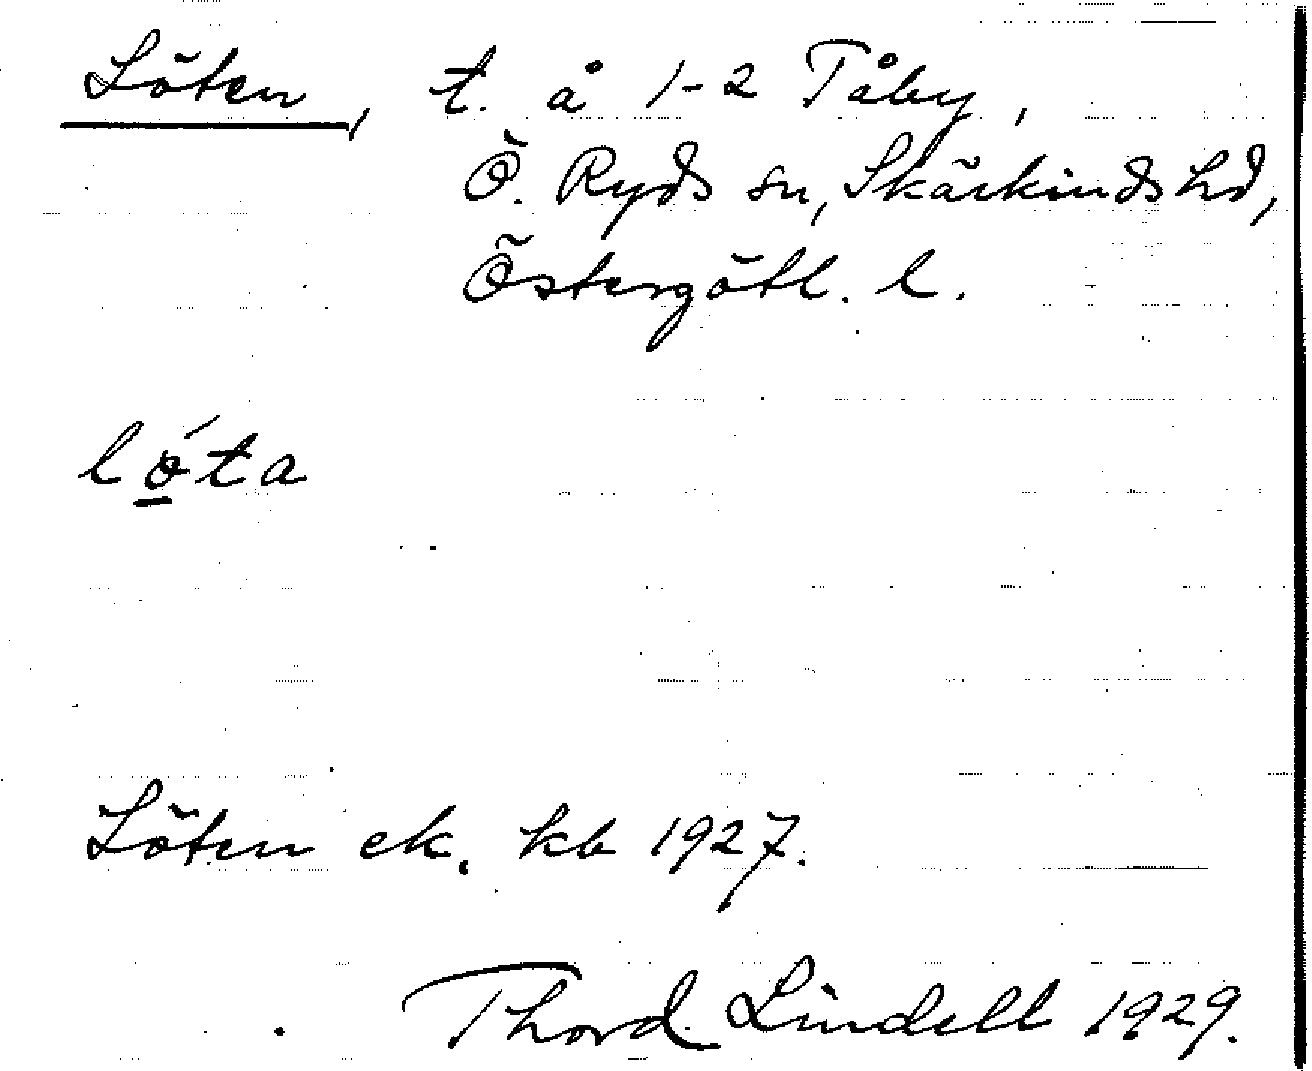 Löten, t. å 1-2 Tåby,
Ö. Ryds sn, Skärkinds hd,
Östergötl. l.
ló̲ta
Löten ek. kb 1927.
Thord Lindell 1929.